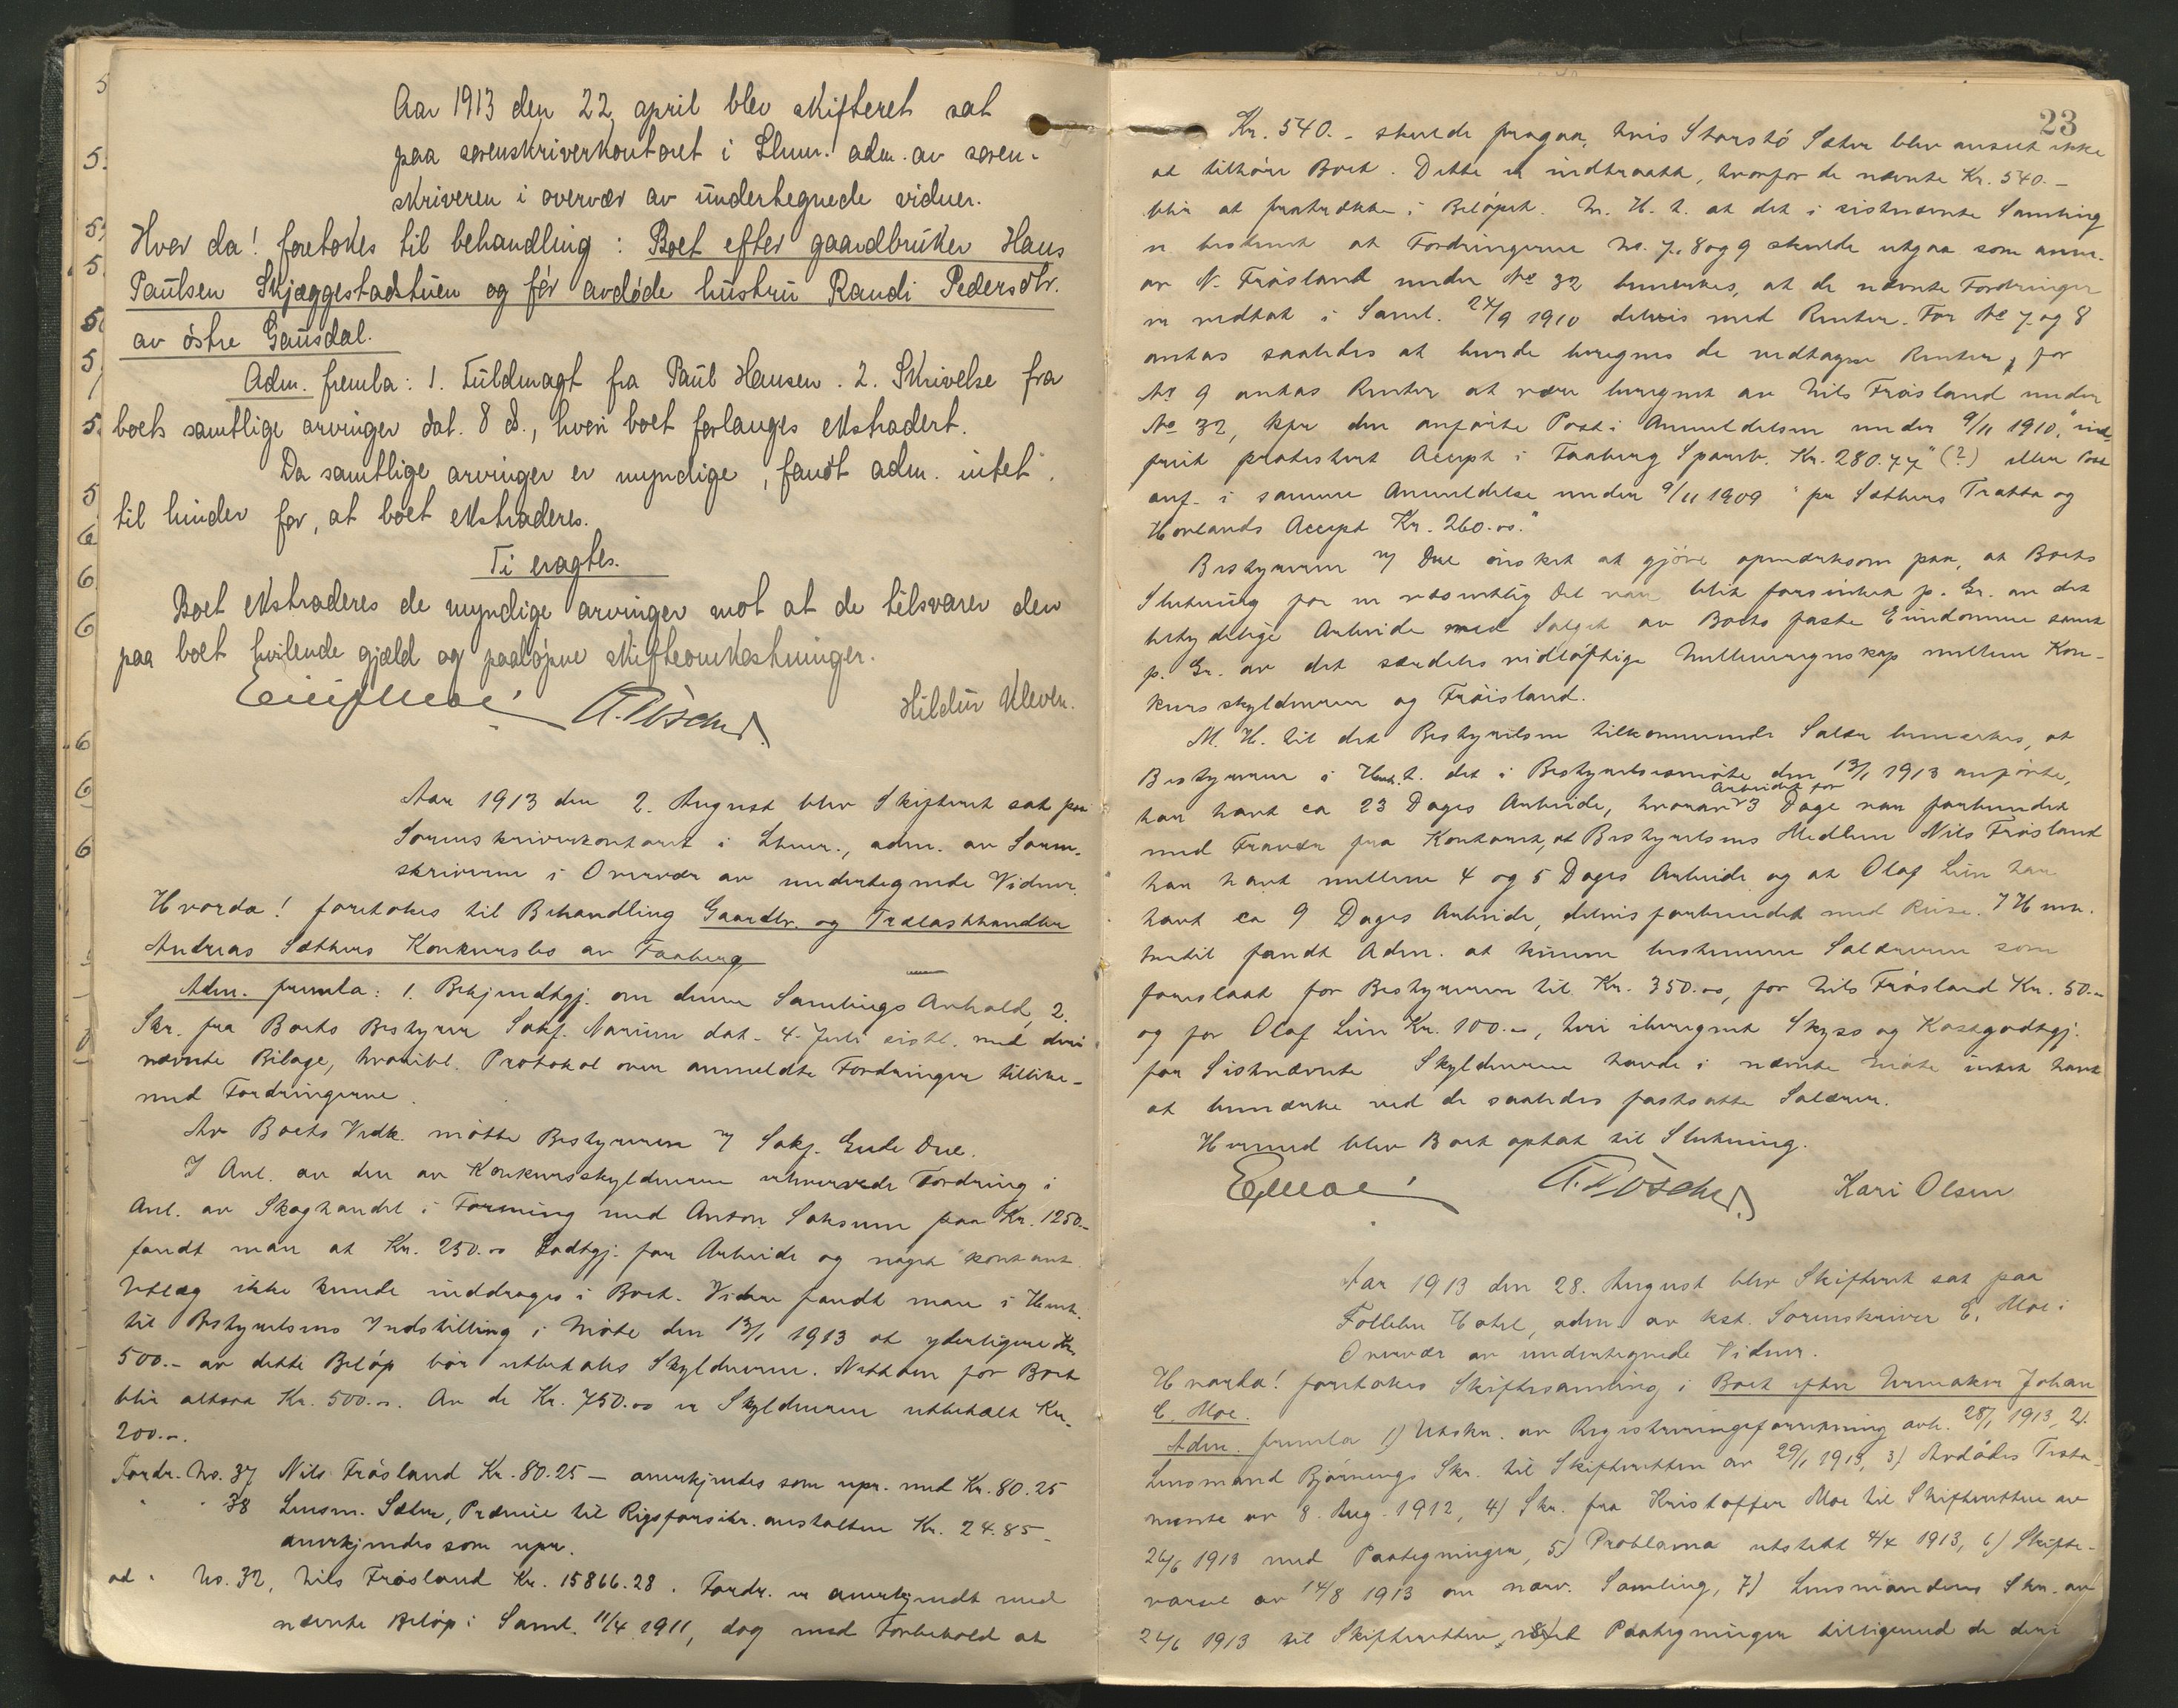 Aar 1913 den 22. april blev skifteret sat
paa sorenskriverkontoret i Lhmr. adm. av soren-
skriveren i overvær av undertegnede vidner.
Hvor da! foretokes til behandling: Boet efter gaardbruker Hans
Paulsen Skjæggestadstuen og før avdøde hustru Randi Pedersdtr.
av østre Gausdal.
Adm. fremla: 1. Fuldmagt fra Paul Hansen. 2. Skrivelse fra
boets samtlige arvinger dat. 8 ds., hvori boet forlanges ekstradert.
Da samtlige arvinger er myndige, fandt adm. intet
til hinder for, at boet ekstraderes.
Ti eragtes.
Boet ekstraderes de myndige arvinger mot at de tilsvarer den
paa boet hvilende gjæld og paaløpne skifteomkostninger.
Hildur Kleven.
Aar 1913 den 2. August blev Skifteret sat paa
Sorenskriverkontoret i Lhmr., adm. av Soren-
skriveren i Overvær av undertegnede Vidner.
Hvorda! foretokes til Behandling Gaardbr. og Trælasthandler
Andreas Sæthers Konkursbo av Faaberg
Adm. fremla: 1. Bekjendtgj. om denne Samlings Avhold, 2.
Skr. fra Boets Bestyrer Sakf. dat. 4. Juli sistl. med deri
nævnte Bilage, hvoribl. Protokol over anmeldte Fordringer tillike-
med Fordringerne.
Av Boets Vedk. møtte Bestyreren v/ Sakf. Gude Due.
I Anl. av den av Konkursskyldneren erhvervede Fordring i
Anl. av Skoghandel i Forening med Anton Saksum paa Kr. 1250.-
fandt man at Kr. 250.00 Godtgj. for Arbeide og noget kontant
Utlæg ikke kunde inddrages i Boet. Videre fandt man i Henh.
til Bestyrelsens Indstilling i Møte den 13/1 1913 at yderligere Kr.
500.- av dette Beløp bør utbetales Skyldneren. Nettoen for Boet
blir altsaa Kr. 500.-. Av de Kr. 750.00 er Skyldneren utbetalt Kr.
200.-.
Fordr. No. 37 Nils Frøsland Kr. 80.25 - anerkjendes som upr. med Kr. 80.25
" " 38 Lensm. Sæter, Præmie til Rigsforsikr.anstalten Kr. 24.85 -
anerkjendes som upr.
ad " No. 32, Nils Frøsland Kr. 15866.28. Fordr. er anerkjendt med
nævnte Beløp i Saml. 11/4 1911, dog med Forbehold at
23
Kr. 540.- skulde fragaa, hvis Storslø Sæter blev anseet ikke
at tilhøre Boet. Dette er indtraadt, hvorfor de nævnte Kr. 540.-
blir at fratrække i Beløpet. M. H. t. at det i sistnævnte Samling
er bestemt at Fordringerne No. 7, 8 og 9 skulde utgaa som anm.
av N. Frøsland under No 32 bemerkes, at de nævnte Fordringer
er vedtat i Saml. 24/9 1910 delvis med Renter. For No 7 og 8
antas saaledes at burde beregnes de vedtagne Renter, for
No 9 antas Renter at være beregnet av Nils Frøsland under
No 32, kfr. den anførte Post i Anmeldelsen under 9/11 1910, "ind-
friet protestert Accept i Faaberg Spareb. Kr. 280.77" (?) eller Post
anf. i samme Anmeldelse under 9/11 1909 "pr Sæthers Tratta og
Hovlands Accept Kr. 260.00."
Bestyreren v/ Due ønsket at gjøre opmerksom paa, at Boets
Slutning for en væsentlig Del var blit forsinket p. Gr. av det
betydelige Arbeide med Salget av Boets faste Eiendomme samt
p. Gr. av det særdeles vidløftige Mellemregnskap mellem Kon-
kursskyldneren og Frøisland.
M. H. til det Bestyrelsen tilkommende Salær bemerkes, at
Bestyreren i Henh. t. det i Bestyrelsesmøte den 13/1 1913 anførte,
har havt ca 23 Dages Arbeide, hvorav Arbeidet for 3 Dage var forbundet
med Fravær fra Kontoret, at Bestyrelsens Medlem Nils Frøsland
har havt mellem 4 og 5 Dages Arbeide og at Olaf Lien har
havt ca 9 Dages Arbeide, delvis forbundet med Reise. I Henh.
hertil fandt Adm. at kunne bestemme Salærerne som
foreslaat for Bestyreren til Kr. 350.00, for Nils Frøsland Kr. 50.-
og for Olaf Lien Kr. 100.-, heri iberegnet Skyss og Kostgodtgj.
for Sistnævnte Skyldneren havde i nævnte Møte intet havt
at bemerke ved de saaledes fastsatte Salærer.
Hermed blev Boet optat til Slutning.
Kari Olsen
Aar 1913 den 28. August blev Skifteret sat paa
Follebu Hotel, adm. av kst. Sorenskriver E. Moe i
Overvær av undertegnede Vidner.
Hvorda! foretokes Skiftesamling i Boet efter Urmaker Johan
E. Moe.
Adm. fremla 1) Utskr. av Registreringsforretning avh. 28/1 1913, 2)
Lensmand Bjørnings Skr. til Skifteretten av 29/1 1913, 3) Avdødes Testa-
mente av 8. Aug. 1912, 4) Skr. fra Kristoffer Moe til Skifteretten av
26/6 1913 med Paategninger, 5) Proklama utstedt 4/4 1913, 6) Skifte-
varsel av 14/8 1913 om nærv. Samling, 7) Lensmandens Skr. av
26/6 1913 til Skifteretten, med Paategninger tilligemed de deri